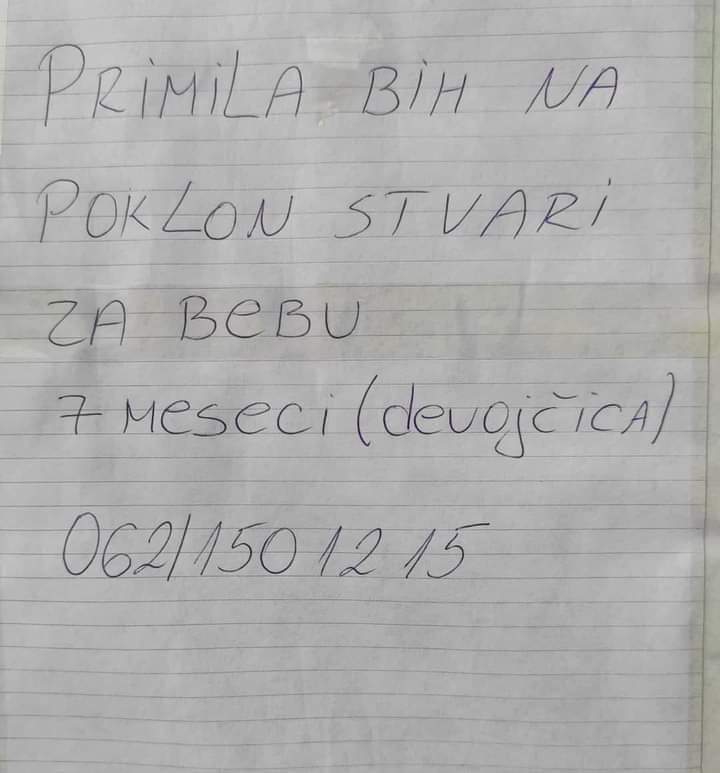 PRiMiLA BiH NA
POKLON STVARi
ZA BeBU
7 Meseci (devojčicA)
062/150 12 15